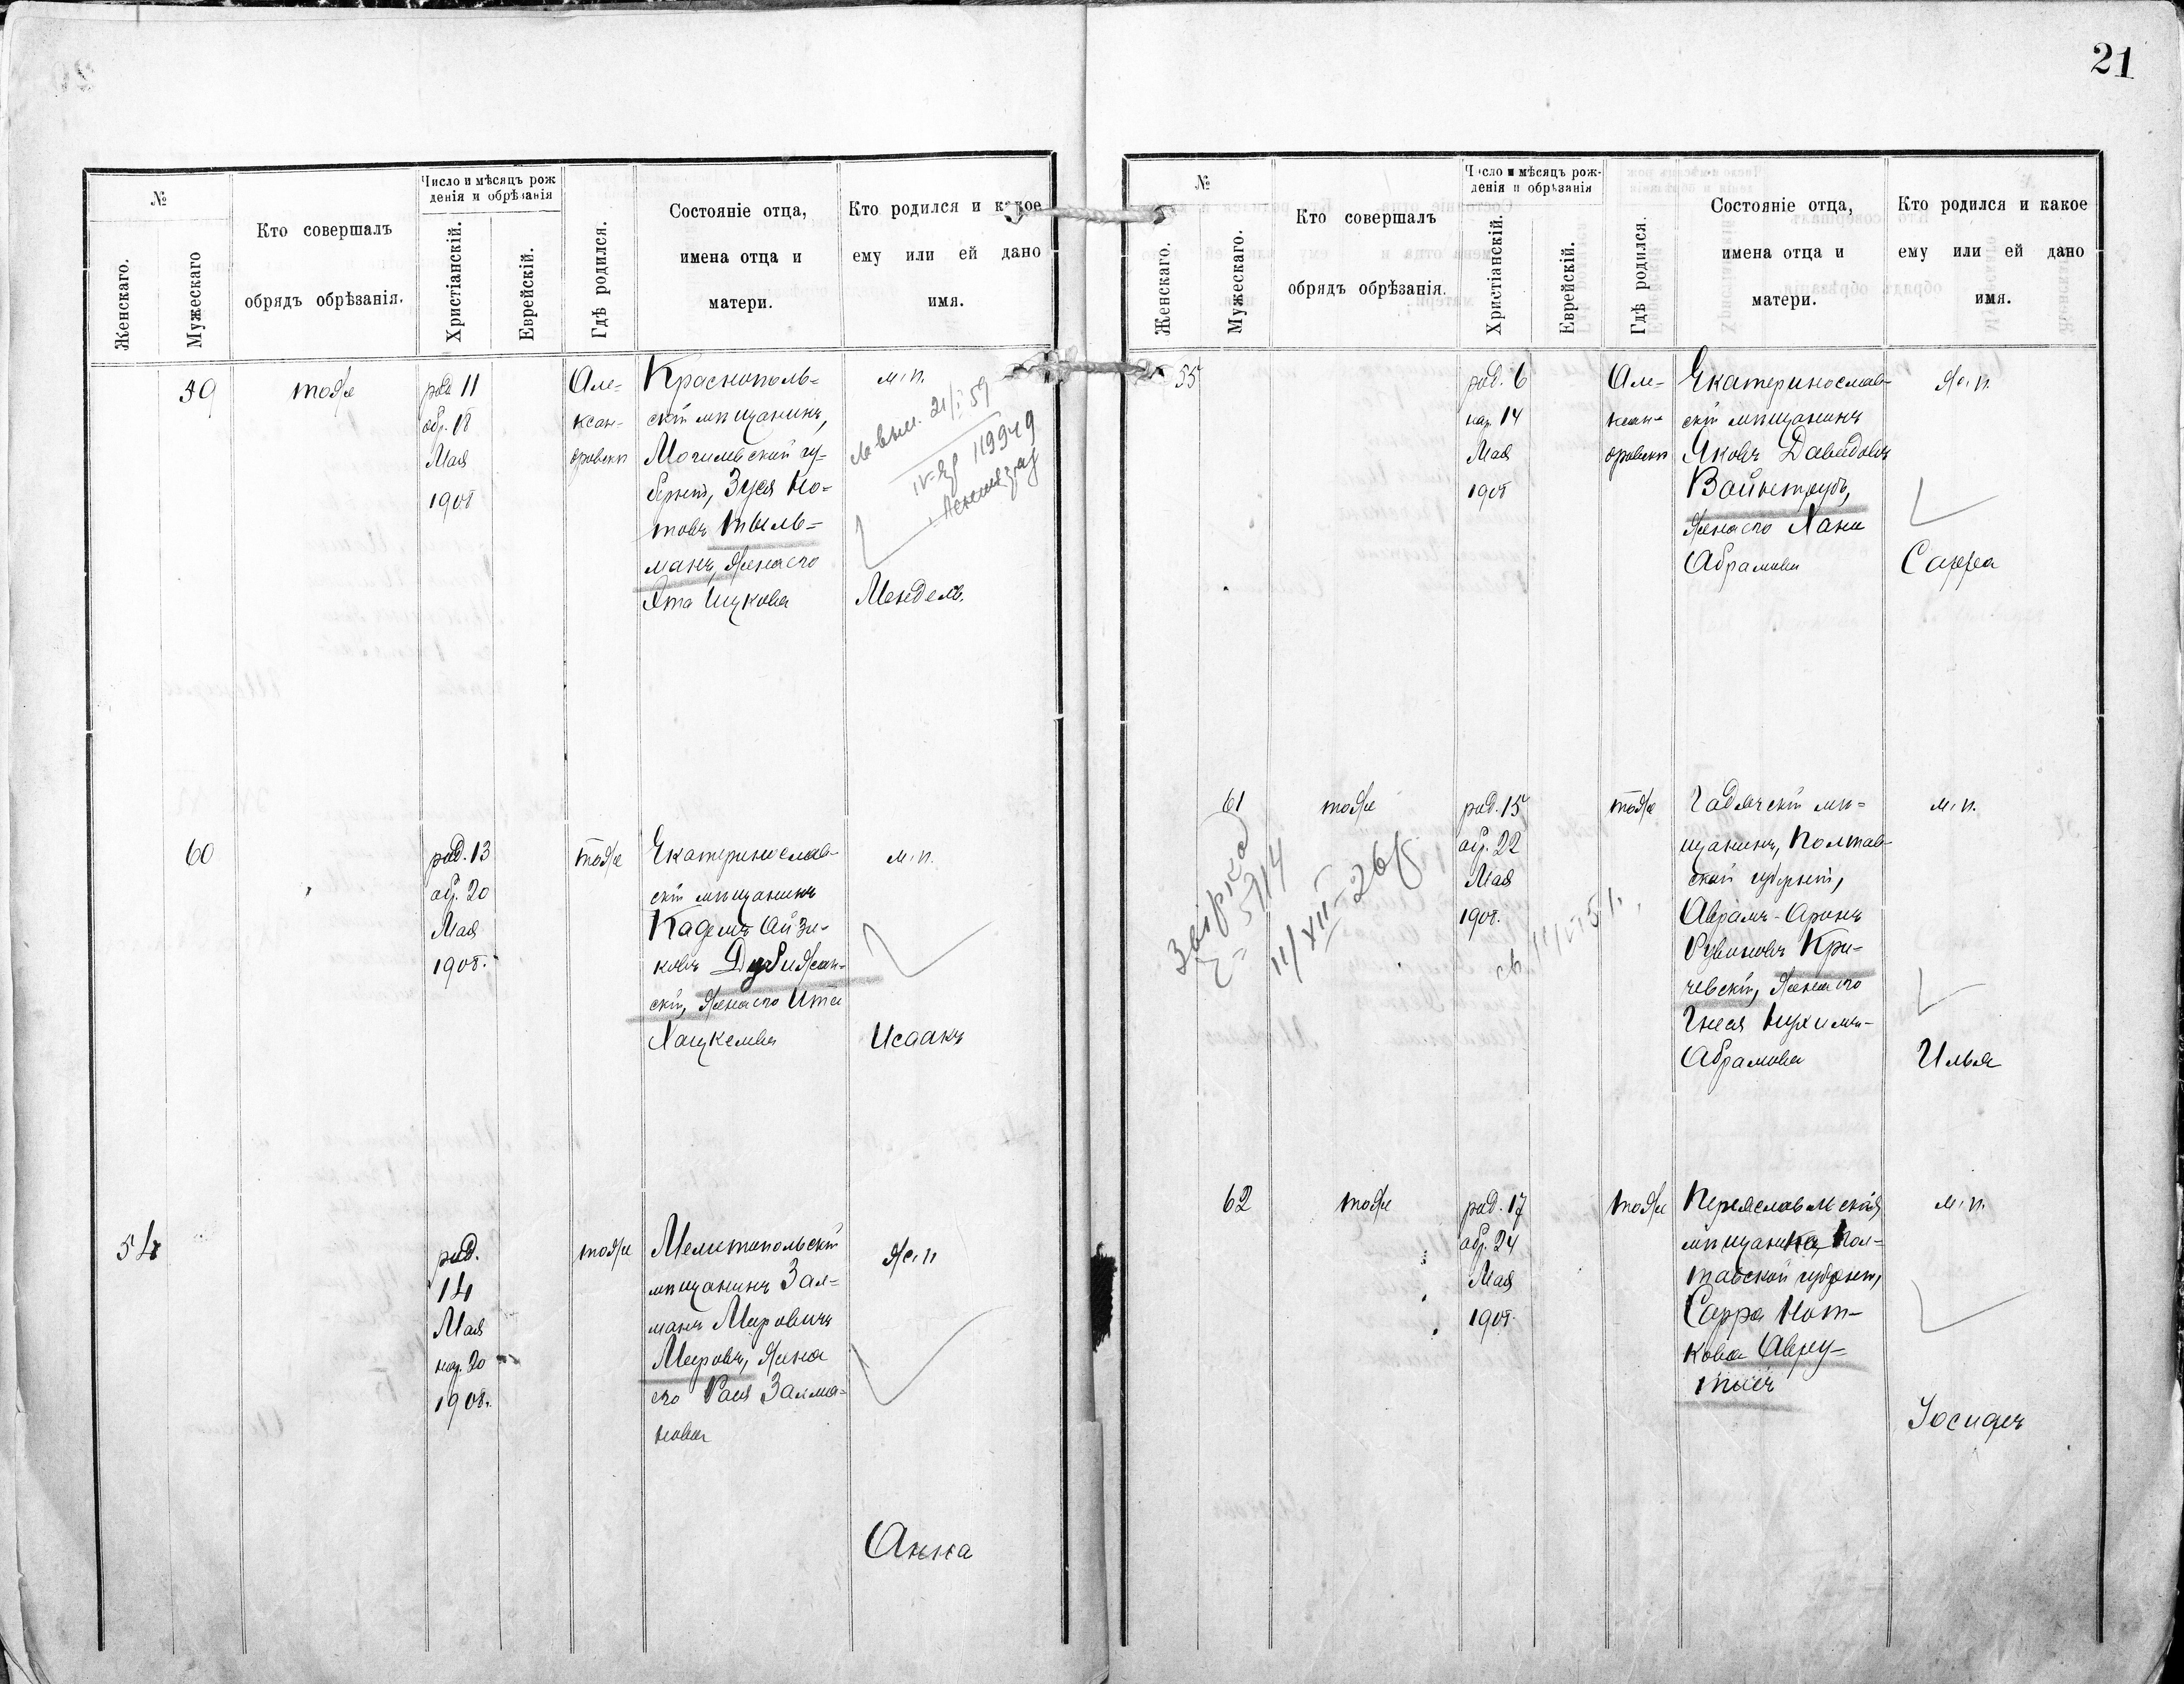 №
Женскаго.
Мужескаго
Кто совершалъ
обрядъ обрѣзанія.
Число и мѣсяцъ рож
денія и обрѣзанія
Христіанскій.
Еврейскій.
Гдѣ родился.
Состояніе отца,
имена отца и
матери.
Кто родился и какое
ему или ей дано
имя.
59
тоже
род 11
обр. 18
Мая
1908
Але-
ксан-
дровскѣ
Краснополь-
скій мѣщанинъ,
Могилевской гу-
берніи, Зуся Но-
товъ Тыль-
манъ, жена его
Ята Ицкова
м. п.
21/I 59
119949
Мендель.
60
род. 13
обр. 20
Мая
1908.
тоже
Екатеринослав-
скій мѣщанинъ
Айзи-
ковъ Дубижан-
скій, жена его Ита
Хацкелевна
м. п.
Исаакъ
54
род.
14
Мая
нар. 20
1908.
тоже
Мелитопольскій
мѣщанинъ Зал-
манъ Меировичъ
Мееровъ, жена
его Рася Залма-
нова
ж. п
Анна
21
№
Женскаго.
Мужескаго.
Кто совершалъ
обрядъ обрѣзанія.
Число и мѣсяцъ рож-
денія и обрѣзанія
Христіанскій.
Еврейскій.
Гдѣ родился.
Состояніе отца,
имена отца и
матери.
Кто родился и какое
ему или ей дано
имя.
55
род. 6
нар. 14
Мая
1908
Але-
ксан-
дровскѣ
Екатеринослав-
скій мѣщанинъ
Яковъ Давидовъ
Вайнтрубъ,
жена его Хана
Абрамова
ж. п.
Сарра
61
тоже
род. 15
обр. 22
Мая
1908.
звірка
5714
11/XII-26
тоже
Гадячскій мѣ-
щанинъ, Полтав-
ской губерніи,
Абрамъ-Аронъ
Рувиновъ Кри-
чевскій, жена его
Гнеся Нухимъ-
Абрамова
м. п.
Илья
62
тоже
род. 17
обр. 24
Мая
1908.
тоже
Переяславльская
мѣщанка, Пол-
тавской губерніи,
Сарра Нот-
кова Авру-
тысъ
м. п.
Іосифъ